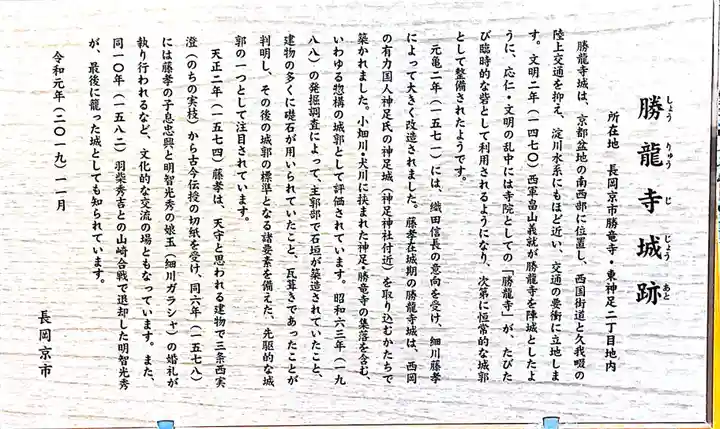 勝龍寺城跡
しょう りゅう じ じょう あと
所在地 長岡京市勝竜寺・東神足二丁目地内
勝龍寺城は、京都盆地の南西部に位置し、西国街道と久我畷の
陸上交通を抑え、淀川水系にもほど近い、交通の要衝に立地しま
す。文明二年(一四七〇)西軍畠山義就が勝龍寺を陣城としたよ
うに、応仁・文明の乱中には寺院としての「勝龍寺」が、たびた
び臨時的な砦として利用されるようになり、次第に恒常的な城郭
として整備されたようです。
元亀二年(一五七一)には、織田信長の意向を受け、細川藤孝
によって大きく改造されました。藤孝在城期の勝龍寺城は、西岡
の有力国人神足氏の神足城(神足神社付近)を取り込むかたちで
築かれました。小畑川・犬川に挟まれた神足・勝竜寺の集落を含む、
いわゆる惣構の城郭として評価されています。昭和六三年(一九
八八)の発掘調査によって、主郭部で石垣が築造されていたこと、
建物の多くに礎石が用いられていたこと、瓦葺きであったことが
判明し、その後の城郭の標準となる諸要素を備えた、先駆的な城
郭の一つとして注目されています。
天正二年(一五七四)藤孝は、天守と思われる建物で三条西実
澄(のちの実枝)から古今伝授の切紙を受け、同六年(一五七八)
には藤孝の子息忠興と明智光秀の娘玉(細川ガラシャ)の婚礼が
執り行われるなど、文化的な交流の場ともなっています。また、
同一〇年(一五八二)羽柴秀吉との山崎合戦で退却した明智光秀
が、最後に籠った城としても知られています。
令和元年(二〇一九)一一月
長岡京市